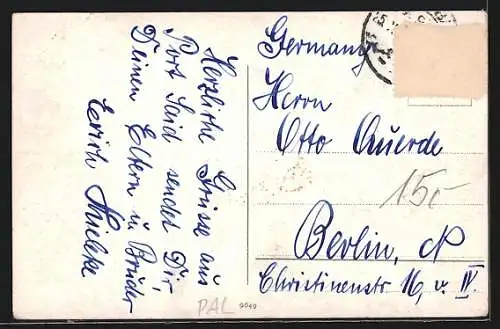 Herzliche Grüsse aus
Port Said sendet Dir
Deinen Eltern u Bruder
Erich
Germany
Herrn
Otto Auerde
Berlin, N
Christinenstr 16, v. IV.
15,-
PAL
9949